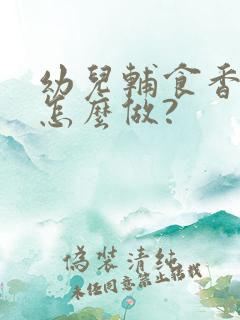 幼兒輔食香
怎麼做?
偽裝清純
未經同意禁止轉載